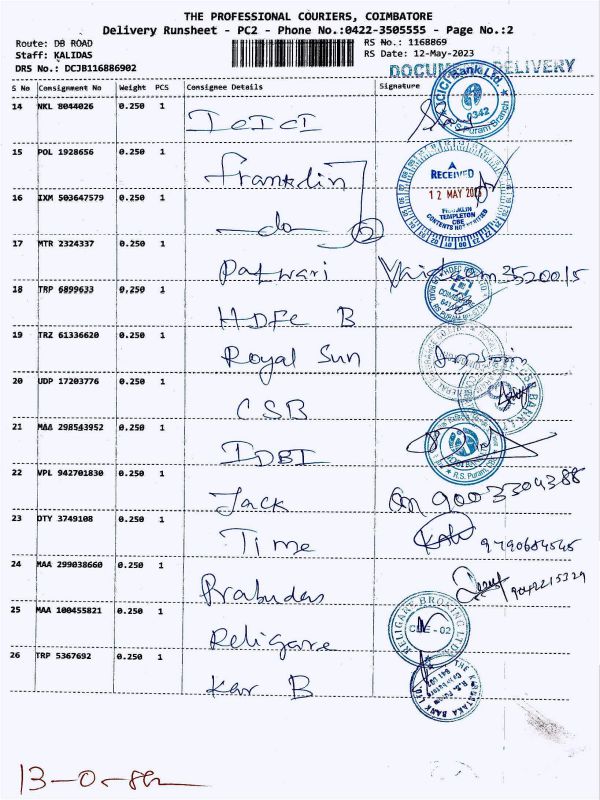 THE PROFESSIONAL COURIERS, COIMBATORE
Delivery Runsheet - PC2 - Phone No.:0422-3505555 - Page No.:2
Route: DB ROAD
Staff: KALIDAS
DRS No.: DCJB116886902
RS No.: 1168869
RS Date: 12-May-2023
DOCUMENT DELIVERY
S No Consignment No Weight PCS Consignee Details Signature
14 NKL 8044026 0.250 1
ICICI
ICICI Bank Ltd. 0342 R.S Puram Branch
15 POL 1928656 0.250 1
Franklin
A RECEIVED
12 MAY 2023
FRANKLIN
TEMPLETON
CBE
CONTENTS NOT VERIFIED
16 IXM 503647579 0.250 1
do 2
17 MTR 2324337 0.250 1
Patwari
18 TRP 6899633 0.250 1
HDFC B
19 TRZ 61336620 0.250 1
Royal Sun
20 UDP 17203776 0.250 1
CSB
CSB BANK LTD
21 MAA 298543952 0.250 1
IDBI
R.S. Puram
22 VPL 942701830 0.250 1
Jack
9003304388
23 DTY 3749108 0.250 1
Time
9790684545
24 MAA 299038660 0.250 1
Prabudas
25 MAA 100455821 0.250 1
Religare
RELIGARE BROKING LTD
CBE-02
26 TRP 5367692 0.250 1
Kar B
THE KARNATAKA BANK LTD.